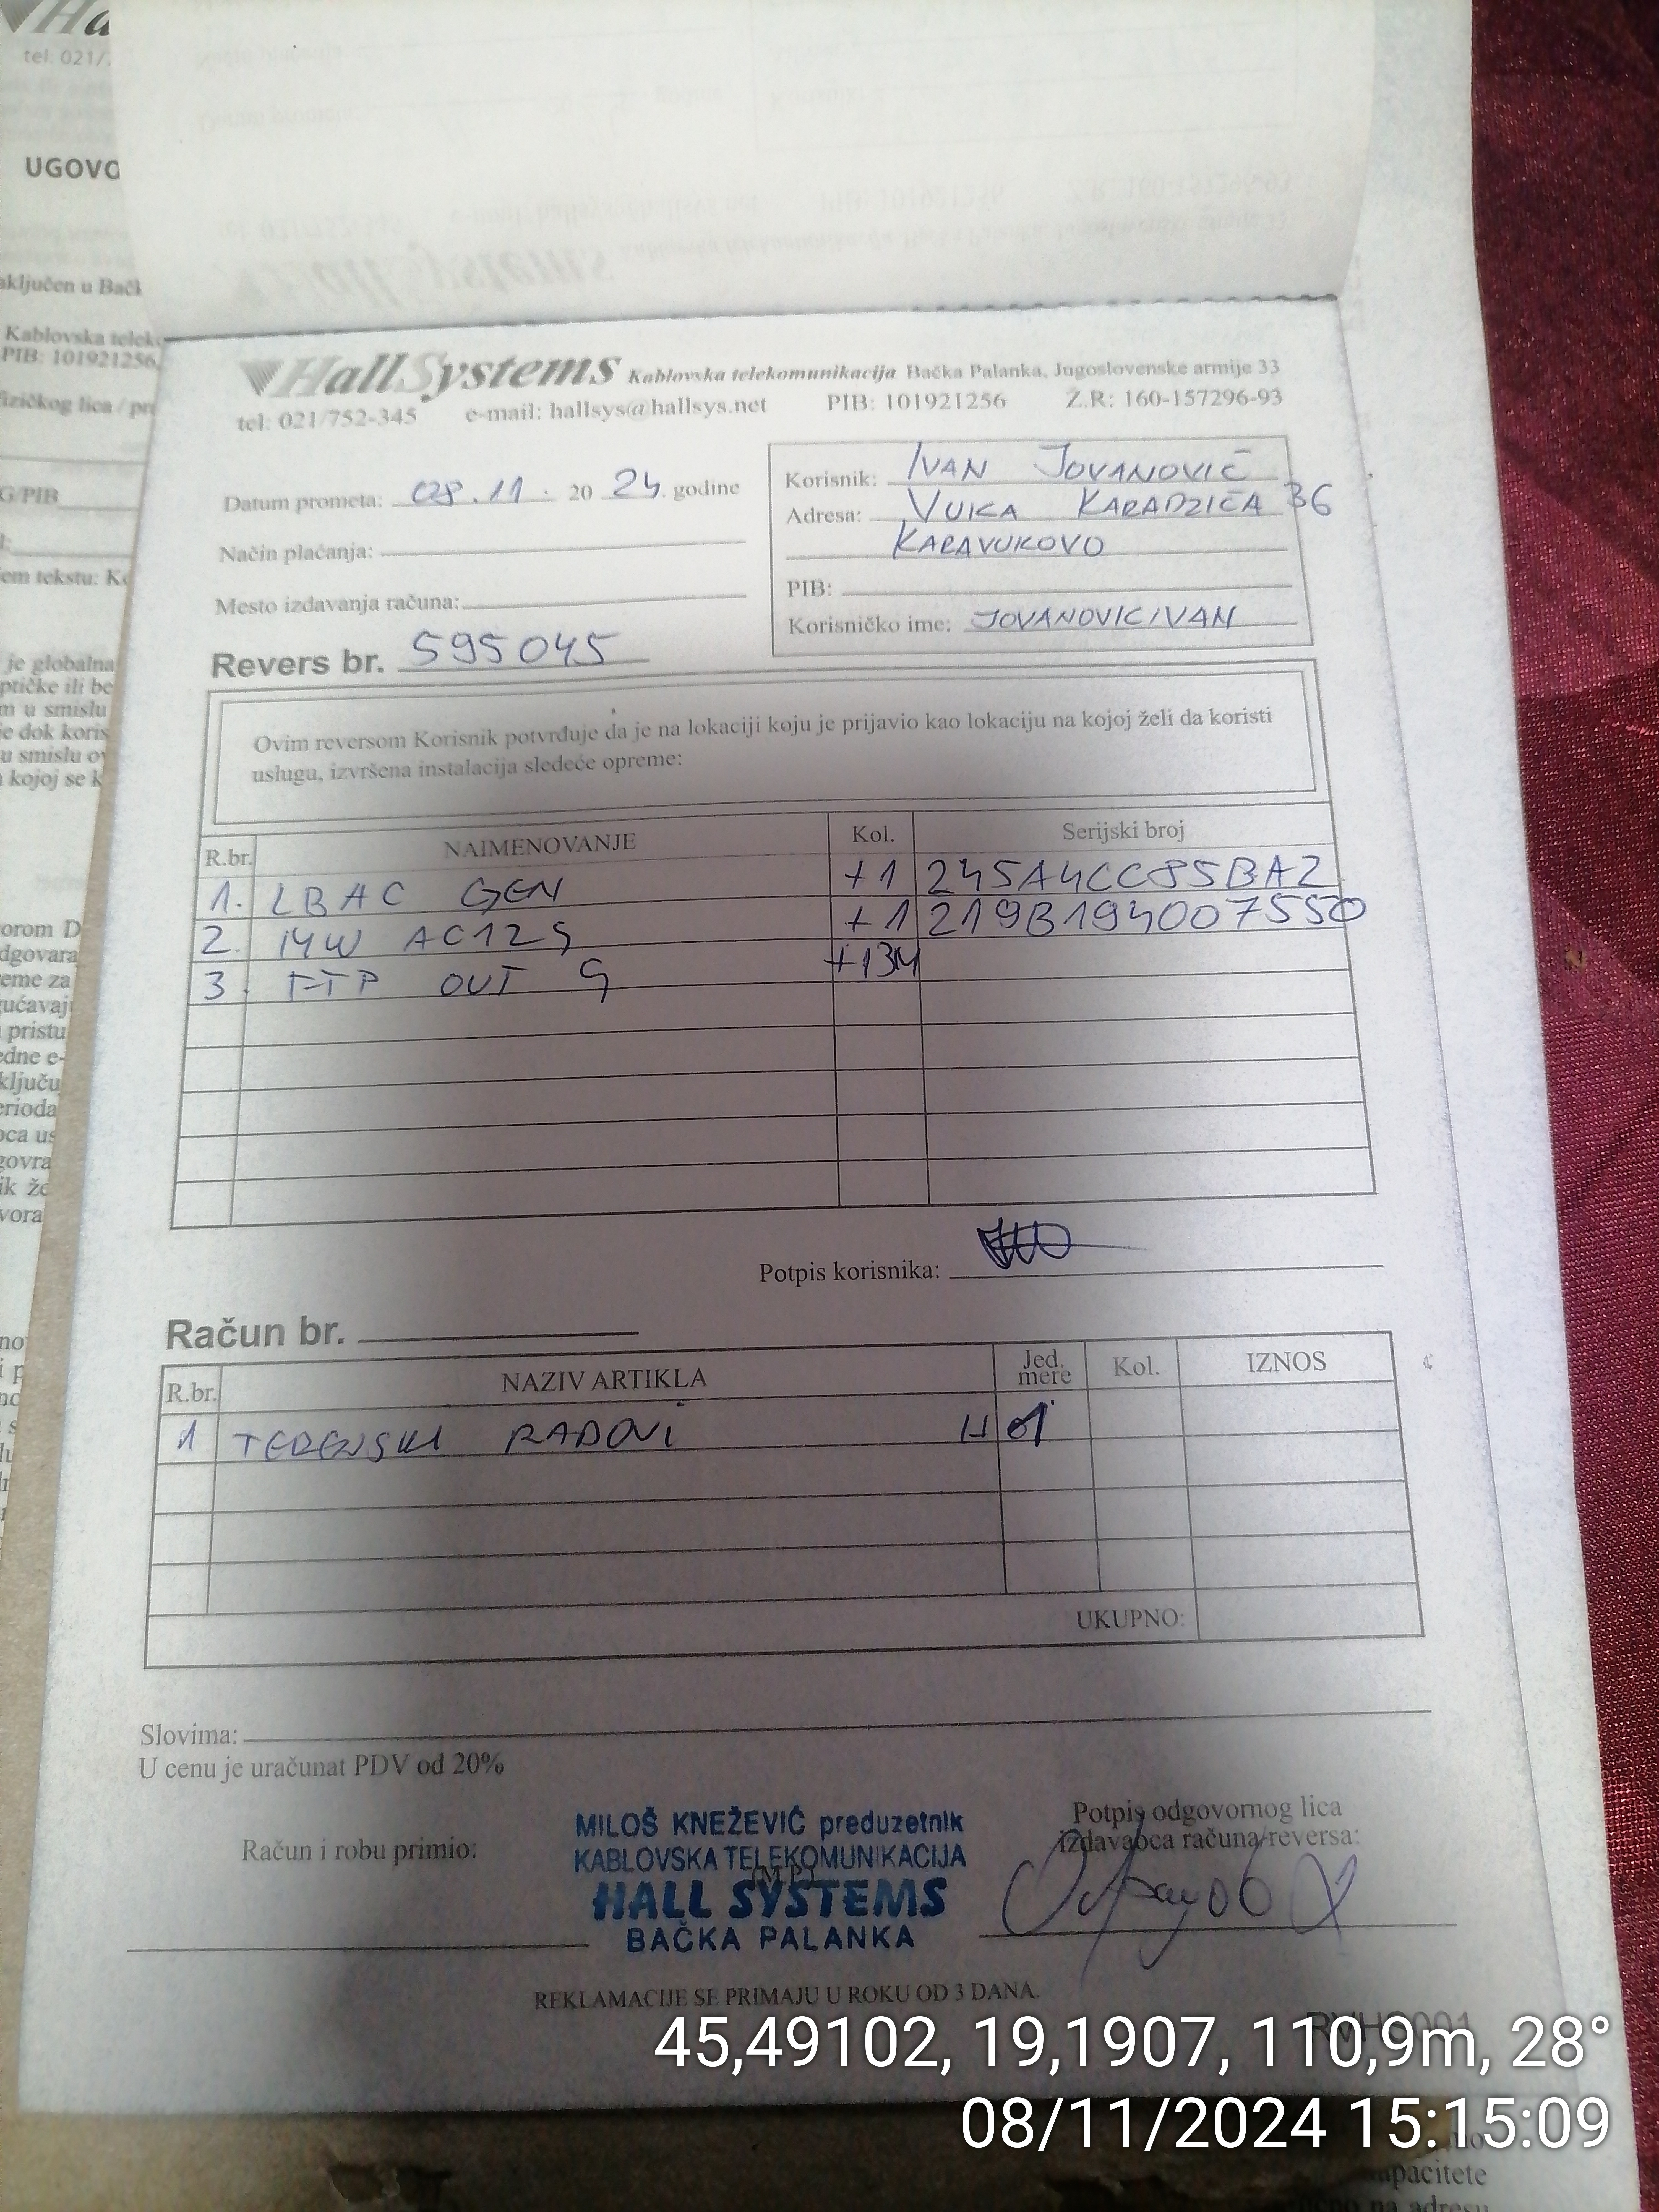 tel. 021/7
UGOVO
aključen u Bačk
Kablovska teleko
PIB: 101921256,
fizičkog lica / pra
G/PIB
em tekstu: Ko
je globalna
ptičke ili be
m u smislu
e dok koris
u smislu ov
kojoj se k
HallSystems Kablovska telekomunikacija Bačka Palanka, Jugoslovenske armije 33
tel: 021/752-345 e-mail: hallsys@hallsys.net PIB: 101921256 Ž.R: 160-157296-93
Datum prometa: 08.11. 20 24. godine
Način plaćanja:
Mesto izdavanja računa:
Korisnik: IVAN JOVANOVIĆ
Adresa: VUKA KARADZIĆA 36
KARAVUKOVO
PIB:
Korisničko ime: JOVANOVICIVAN
Revers br. 595045
Ovim reversom Korisnik potvrđuje da je na lokaciji koju je prijavio kao lokaciju na kojoj želi da koristi
uslugu, izvršena instalacija sledeće opreme:
R.br. NAIMENOVANJE Kol. Serijski broj
1. LBAC GEN +1 245A4CC85BA2
2. MW AC12 G +1 219B194007550
3. FTP OUT G +13M
Potpis korisnika:
Račun br.
R.br. NAZIV ARTIKLA Jed. mere Kol. IZNOS
1 TERENSKI RADOVI H 1
UKUPNO:
Slovima:
U cenu je uračunat PDV od 20%
Račun i robu primio:
MILOŠ KNEŽEVIĆ preduzetnik
KABLOVSKA TELEKOMUNIKACIJA
(M.P.)
HALL SYSTEMS
BAČKA PALANKA
Potpis odgovornog lica
izdavaoca računa/reversa:
REKLAMACIJE SE PRIMAJU U ROKU OD 3 DANA.
45,49102, 19,1907, 110,9m, 28°
08/11/2024 15:15:09